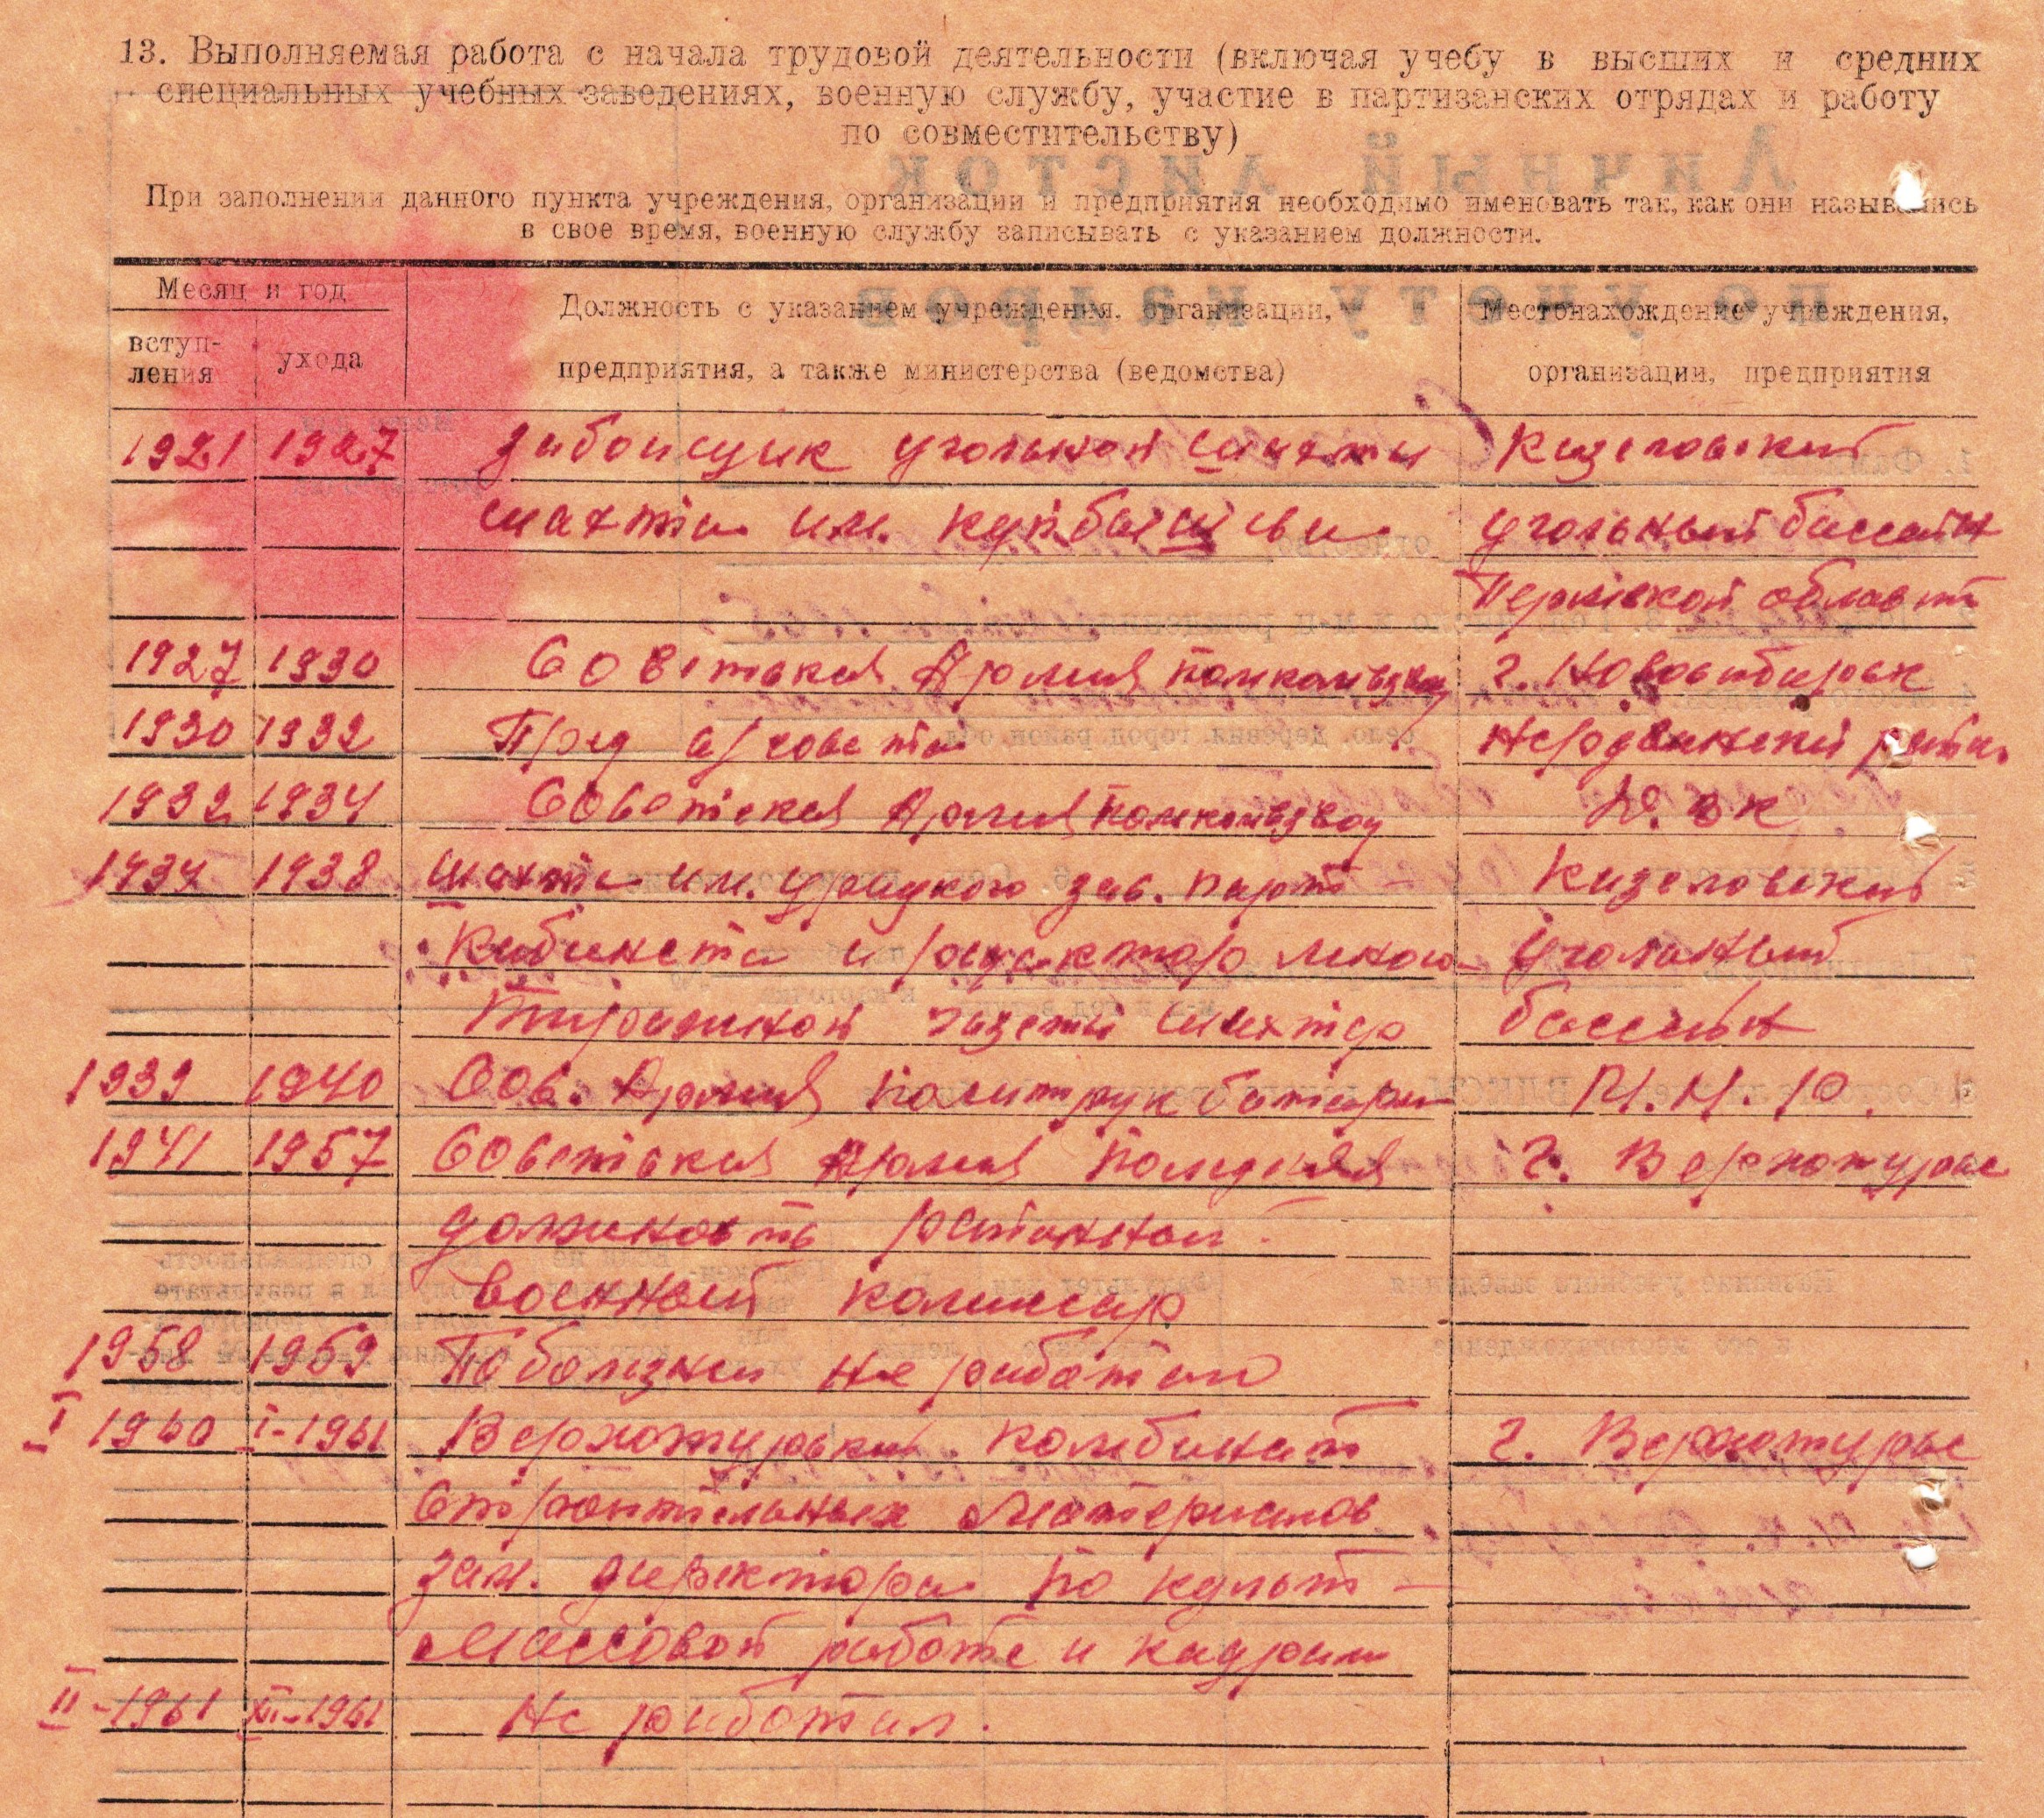 13. Выполняемая работа с начала трудовой деятельности (включая учебу в высших и средних
специальных учебных заведениях, военную службу, участие в партизанских отрядах и работу
по совместительству)
Личный листок
При заполнении данного пункта учреждения, организации и предприятия необходимо именовать так, как они назывались
в свое время, военную службу записывать с указанием должности.
по учету кадров
Месяц и год
вступ-
ления
ухода
Должность с указанием учреждения, организации,
предприятия, а также министерства (ведомства)
Местонахождение учреждения,
организации, предприятия
1921 1927 Забойщик угольной шахты Кизеловский
шахта им. Куйбышева угольный бассейн
Пермской области
1927 1930 Советская Армия помкомвзвод г. Новосибирск
1930 1932 Пред. с/совета
1932 1934 Советская Армия помкомвзвод
1934 1938 Шахта им. Урицкого зав. парт- Кизеловский
кабинета и редактор много- угольный
тиражной газеты Шахтер бассейн
1939 1940 Сов. Армия политрук батареи
1941 1957 Советская Армия последняя г. Верхотурье
должность районный
военный комиссар
1958 1959 По болезни не работал
I 1960 I-1961 Верхотурский комбинат г. Верхотурье
строительных материалов
зам. директора по культ-
массовой работе и кадрам
II-1961 XII-1961 Не работал.